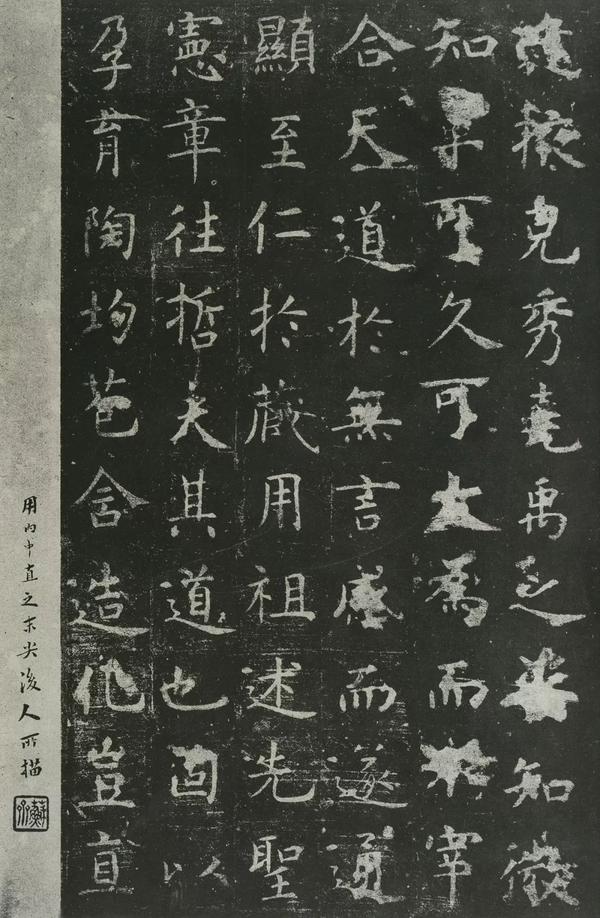 掖克秀堯禹之知微
知章可久可大為而不宰
合天道於無言感而遂通
顯至仁於藏用祖述先聖
憲章往哲夫其道也固以
孕育陶均苞含造化豈直
用內中直之末尖後人所描